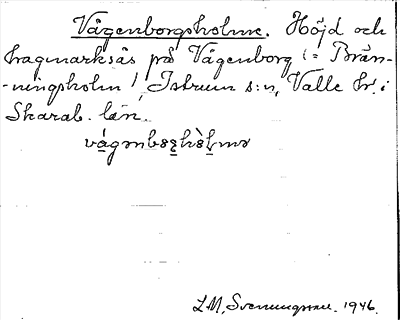 Vågenborgsholme. Höjd och
hagmarksås på Vågenborg (= Brän-
-ningsholm), Istrum s:n, Valle hd. i
Skarab. län.
L.M. Svenungsson. 1946.